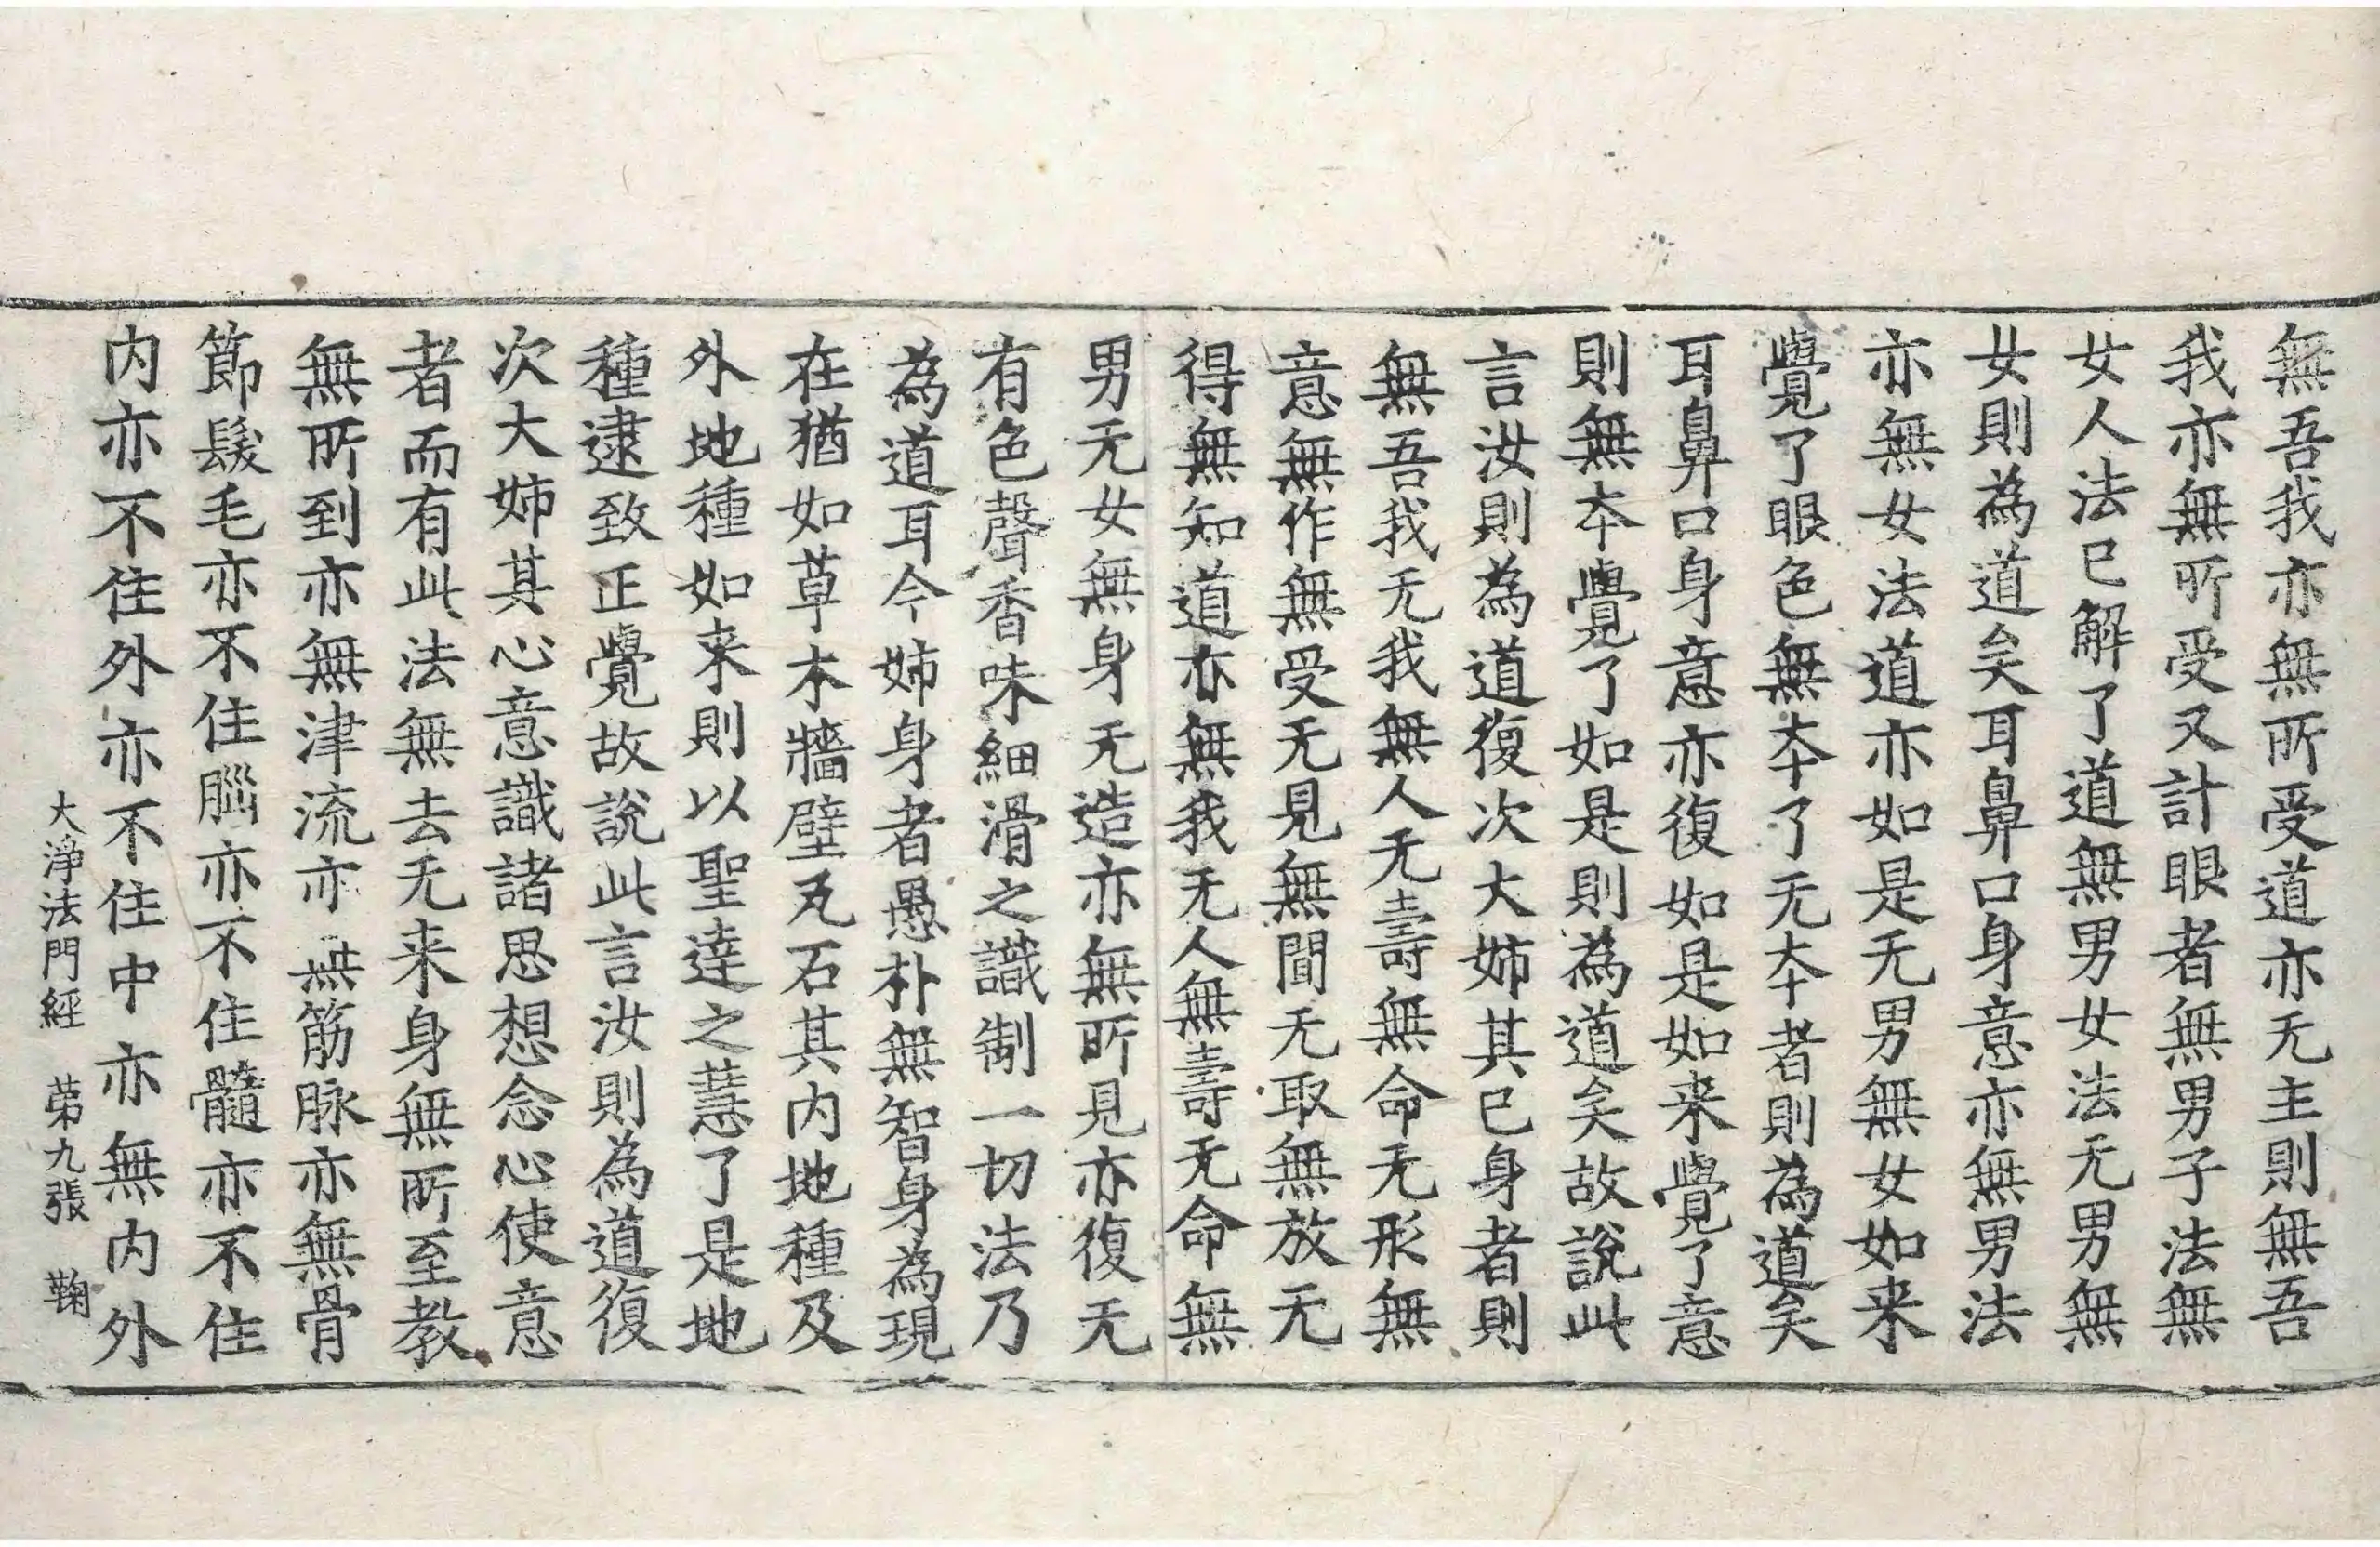 無吾我亦無所受道亦无主則無吾
我亦無所受又計眼者無男子法無
女人法已解了道無男女法无男無
女則為道矣耳鼻口身意亦無男法
亦無女法道亦如是无男無女如来
覺了眼色無夲了无夲者則為道矣
耳鼻口身意亦復如是如来覺了意
則無夲覺了如是則為道矣故說此
言汝則為道復次大姉其已身者則
無吾我无我無人无壽無命无形無
意無作無受无見無聞无取無放无
得無知道亦無我无人無壽无命無
男无女無身无造亦無所見亦復无
有色聲香味細滑之識制一切法乃
為道耳今姉身者愚朴無智身為現
在猶如草木牆壁瓦石其内地種及
外地種如来則以聖達之慧了是地
種逮致正覺故說此言汝則為道復
次大姉其心意識諸思想念心使意
者而有此法無去无来身無所至教
無所到亦無津流亦無筋脉亦無骨
節髮毛亦不住腦亦不住髓亦不住
内亦不住外亦不住中亦無内外
大淨法門經 苐九張 鞠